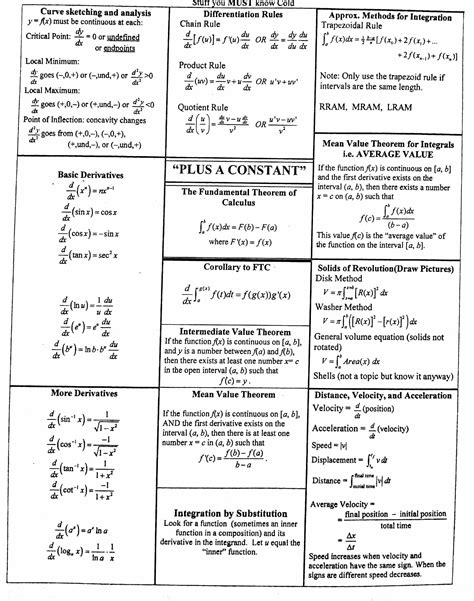 Stuff you MUST know Cold
Curve sketching and analysis
y = f(x) must be continuous at each:
Critical Point: dy/dx = 0 or undefined
or endpoints
Local Minimum:
dy/dx goes (–,0,+) or (–,und,+) or d²y/dx² >0
Local Maximum:
dy/dx goes (+,0,–) or (+,und,–) or d²y/dx² <0
Point of Inflection: concavity changes
d²y/dx² goes from (+,0,–), (–,0,+),
(+,und,–), or (–,und,+)
Differentiation Rules
Chain Rule
d/dx [f(u)] = f'(u) du/dx OR dy/dx = dy/du du/dx
Product Rule
d/dx (uv) = du/dx v + u dv/dx OR u'v + uv'
Quotient Rule
d/dx (u/v) = (du/dx v – u dv/dx)/v² OR (u'v – uv')/v²
Approx. Methods for Integration
Trapezoidal Rule
∫ₐᵇ f(x)dx = 1/2 (b-a)/n [f(x₀) + 2f(x₁) + ...
+ 2f(xₙ₋₁) + f(xₙ)]
Note: Only use the trapezoid rule if
intervals are the same length.
RRAM, MRAM, LRAM
Basic Derivatives
d/dx (xⁿ) = nxⁿ⁻¹
d/dx (sin x) = cos x
d/dx (cos x) = – sin x
d/dx (tan x) = sec² x
d/dx (ln u) = 1/u du/dx
d/dx (eᵘ) = eᵘ du/dx
d/dx (bᵘ) = ln b·bᵘ du/dx
"PLUS A CONSTANT"
The Fundamental Theorem of
Calculus
∫ₐᵇ f(x)dx = F(b) – F(a)
where F'(x) = f(x)
Corollary to FTC
d/dx ∫ₐ^g(x) f(t)dt = f(g(x))g'(x)
Intermediate Value Theorem
If the function f(x) is continuous on [a, b],
and y is a number between f(a) and f(b),
then there exists at least one number x= c
in the open interval (a, b) such that
f(c) = y.
Mean Value Theorem for Integrals
i.e. AVERAGE VALUE
If the function f(x) is continuous on [a, b]
and the first derivative exists on the
interval (a, b), then there exists a number
x = c on (a, b) such that
f(c) = ∫ₐᵇ f(x)dx / (b – a)
This value f(c) is the "average value" of
the function on the interval [a, b].
Solids of Revolution(Draw Pictures)
Disk Method
[R(x)]² dx
Washer Method
V = π∫ₐᵇ ([R(x)]² – [r(x)]²) dx
General volume equation (solids not
rotated)
V = ∫ₐᵇ Area(x) dx
Shells (not a topic but know it anyway)
More Derivatives
d/dx (sin⁻¹ x) = 1/√(1–x²)
d/dx (cos⁻¹ x) = –1/√(1–x²)
d/dx (tan⁻¹ x) = 1/(1+x²)
d/dx (cot⁻¹ x) = –1/(1+x²)
d/dx (aˣ) = aˣ ln a
d/dx (logₐ x) = 1/(ln a) · 1/x
Mean Value Theorem
If the function f(x) is continuous on [a, b],
AND the first derivative exists on the
interval (a, b), then there is at least one
number x = c in (a, b) such that
f'(c) = (f(b) – f(a))/(b – a).
Integration by Substitution
Look for a function (sometimes an inner
function in a composition) and its
derivative in the integrand. Let u equal the
"inner" function.
Distance, Velocity, and Acceleration
Velocity = d/dt (position)
Acceleration = d/dt (velocity)
Speed = |v|
Displacement = v dt
Distance = ∫ initial time final time |v| dt
Average Velocity =
= final position – initial position / total time
= Δx/Δt
Speed increases when velocity and
acceleration have the same sign. When the
signs are different speed decreases.